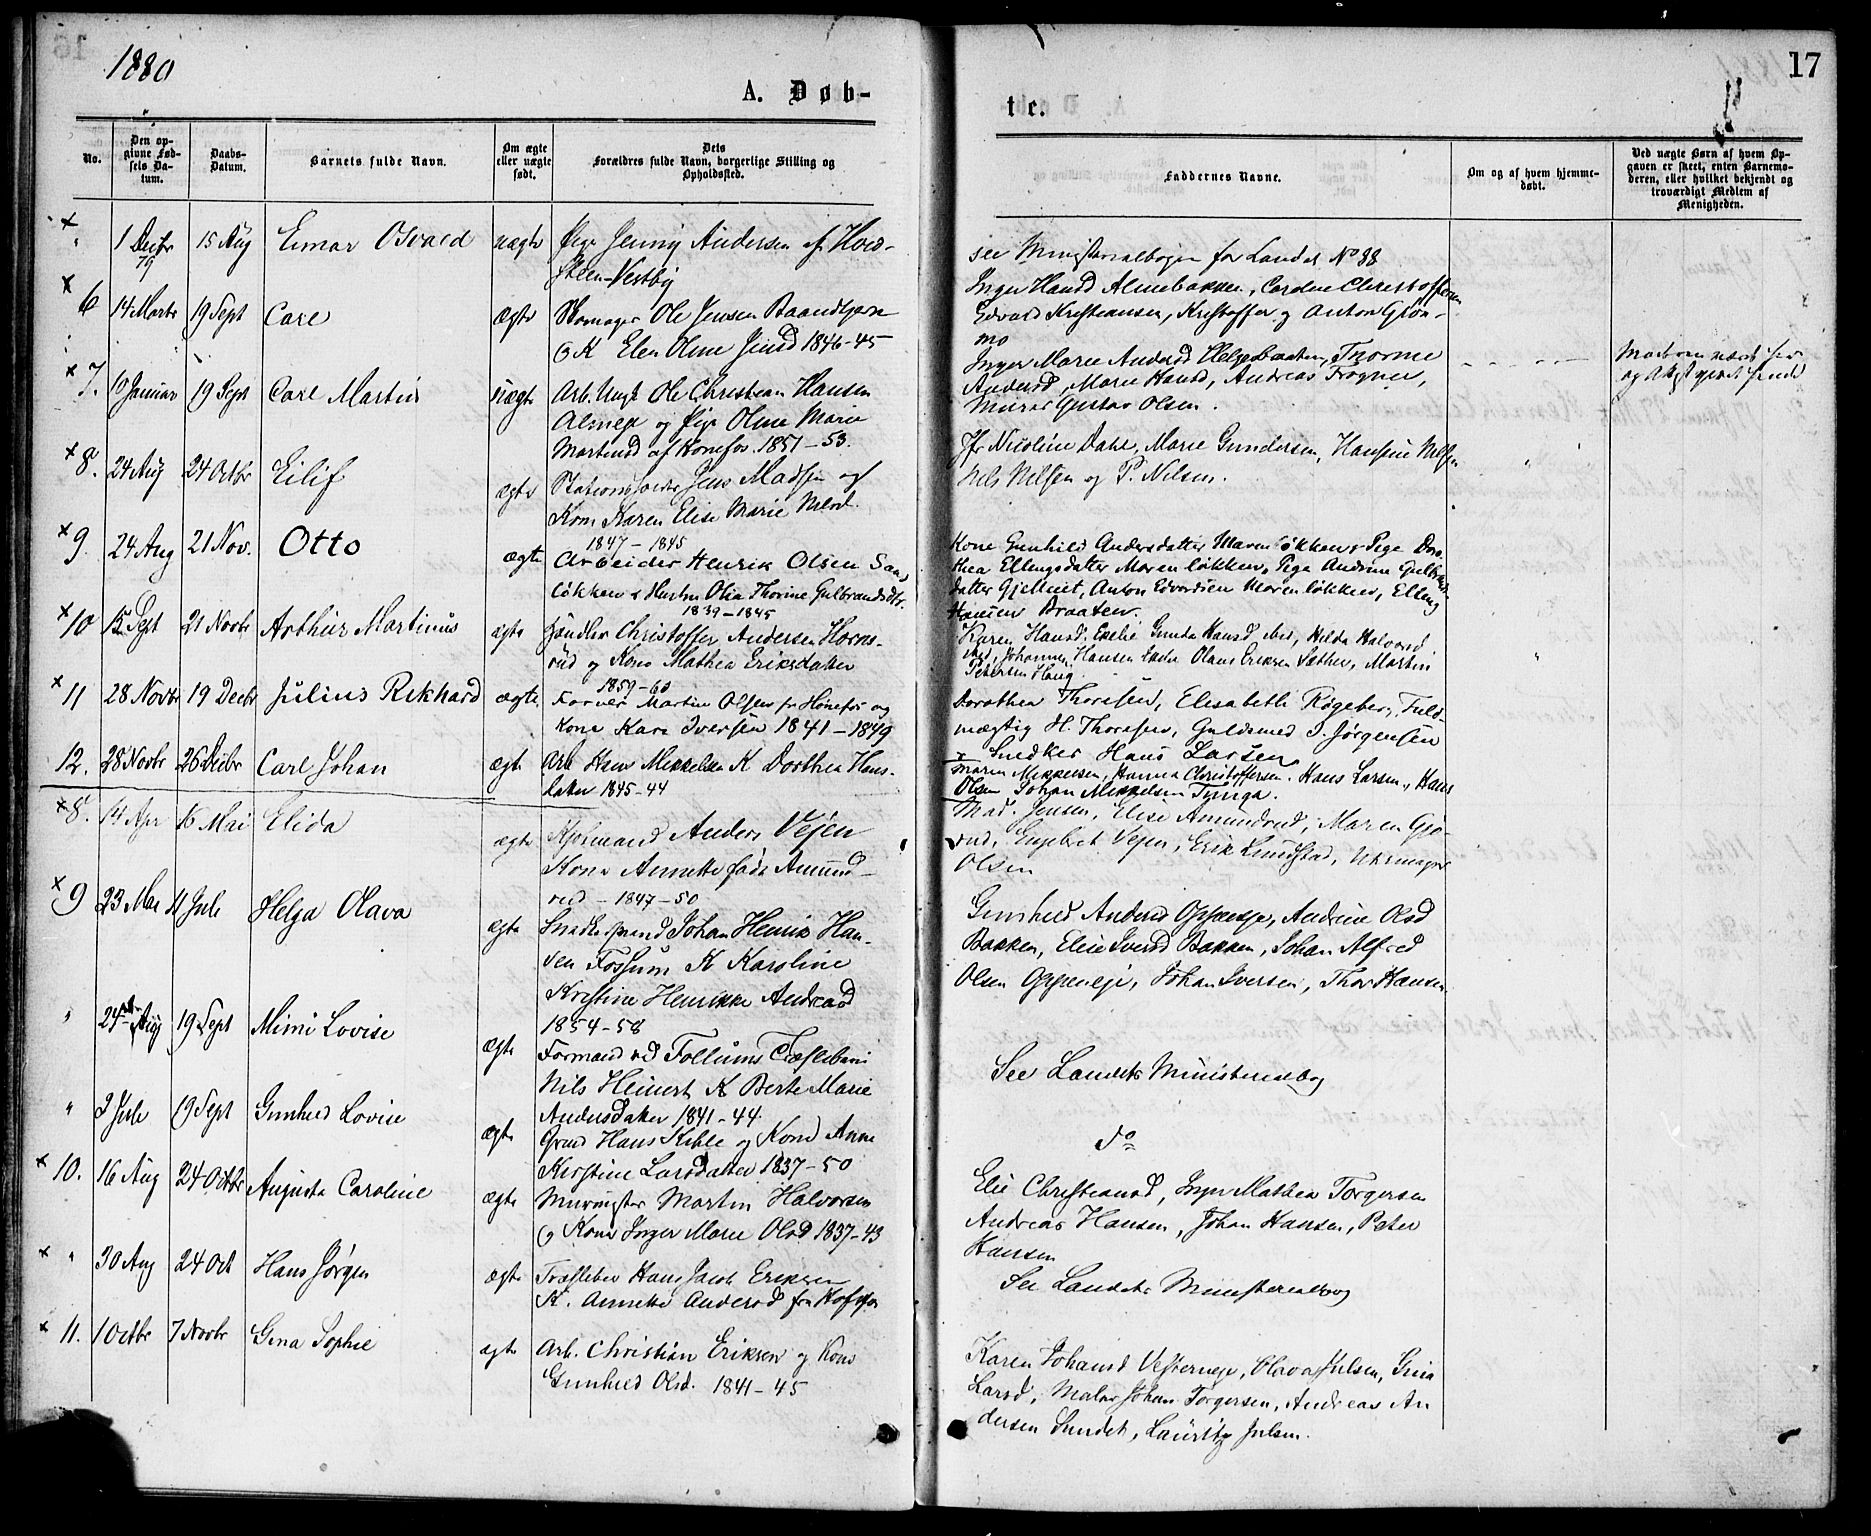 1880
A. Døb-
No.
Den opgivne Fødsels Datum.
Daabs-Datum.
Barnets fulde Navn.
Om ægte eller uægte født.
Dets Forældres fulde Navn, borgerlige Stilling og Opholdssted.
× " 1 Decbr 79 15 Aug Eimar Osvald uægte Pige Jenny Andersen af
Vestby
× 6 14 Marts 19 Sept Carl ægte Ole Jensen
K Elen Oline Jensd 1846-45
× 7. 19 Januar 19 Sept Carl Martin uægte Arb. Ungk Ole Christian Hansen
og Pige Oline Marie
Martinsd af Hønefos. 1851-53.
× 8. 24 Aug 24 Octbr Eilif ægte Jens Madsen og
Kone Karen Elise Marie
1847-1845
× 9. 24 Aug 21 Nov. Otto ægte Arbeider Henrik Olsen
løkken & Hustru Olia Thorine Gulbrandsdtr.
1839-1845
× 10 15 Sept 21 Novbr Arthur Martinus ægte Handler Christoffer Andersen Horns-
rud og Kone Mathea Eriksdatter
1859-60
× 11 28 Novbr 19 Decbr Julius Rikhard ægte Farver Martin Olsen fr Hønefos og
Kone Kari Iversen 1841-1849
12. 28 Novbr 26 Decbr Carl Johan ægte Arb Hans Mikkelsen K Dorthea Hans-
datter 1845-44
× 8. 14 Apr 16 Mai Elida ægte Kjøbmand Anders Vejen
Kone Annette født Amund-
rud - 1847-50
× 9 23 Mai 11 Juli Helga Olava ægte Johan Henrik Han-
sen Fossum K Karoline
Kristine Henrikke Andreasd
1854-58
" 24 Aug 19 Sept Mimi Lovise ægte Formand ved Follums Træsliberi
Nils Heinert K Berte Marie
Andersdatter 1841-44.
" 2 Juli 19 Sept Gunhild Lovise ægte Hans Kihle og Kone Anne
Kirstine Larsdatter 1837-50
× 10. 16 Aug 24 Octbr Augusta Caroline ægte Murmester Martin Halvorsen
og Kone Inger Marie Olsd 1837-43
× " 30 Aug 24 Oct Hans Jørgen ægte Træsliber Hans Jacob Eriksen
K. Annette Andersd fra
× 11. 1 Octbr 7 Novbr Gina Sophie ægte Arb. Christian Eriksen og Kone
Gunhild Olsd. 1841-45
17
te.
Faddernes Navne.
Om og af hvem hjemme-døbt.
Ved uægte Børn af hvem Opgaven er skeet, enten Barnemoderen, eller hvilket bekjendt og troværdigt Medlem af Menigheden.
see Ministerialbogen for Landet No 88
Inger Hansd Almebakken, Caroline Christoffersen
Edvard Kristiansen, Kristoffer og Anton Grøn-
mo
Inger Marie Andersd Helgesbraaten, Thorine
Andersd, Marie Hansd, Andreas Frogner,
Murer Gustav Olsen.
Jfr Nicoline Dahl, Marie Gundersen, Hansine Nilsen
Nils Nilsen og P. Nilsen.
Kone Gunhild Andersdatter Marenløkken, Pige Doro-
thea Ellingsdatter Marenløkken, Pige Andrine Gulbrands-
datter Gjelleiet, Anton Edvardsen Marenløkken, Elling
Hansen Braaten.
Karen Hansd. Gunda Hansd ibid, Hilda Halvorsd
ibid, Johannes Hansen Olaus Eriksen Sæther, Martin
Petersen Haug.
Dorothea Thoresen, Elisabeth Røgeberg, Fuld-
mægtig H. Thoresen, Guldsmed I. Jørgensen
× Snedker Hans Larsen
Maren Mikkelsen, Hanna Christoffersen. Hans Larsen, Hans
Olsen Johan Mikkelsen
Mad. Jensen, Elise Amundrud, Maren Gjø-
rud, Engebret Vejen, Erik Lundstad, Uhrmager
Olsen
Gunhild Andersd Oppeneje, Andrine Olsd
Bakken, Elise Iversd Bakken, Johan Alfred
Olsen Oppeneje, Johan Iversen, Thor Hansen.
See Landets Ministerialbog
do
Elie Christiansd, Inger Mathea Torgersen
Andreas Hansen, Johan Hansen, Peter
Hansen
See Landets Ministerialbog
Karen Johansd Vesterneje, Olava Julsen, Gina
Larsd, Maler Johan Torgersen, Andreas An
dersen Sundet, Lauritz Julsen.